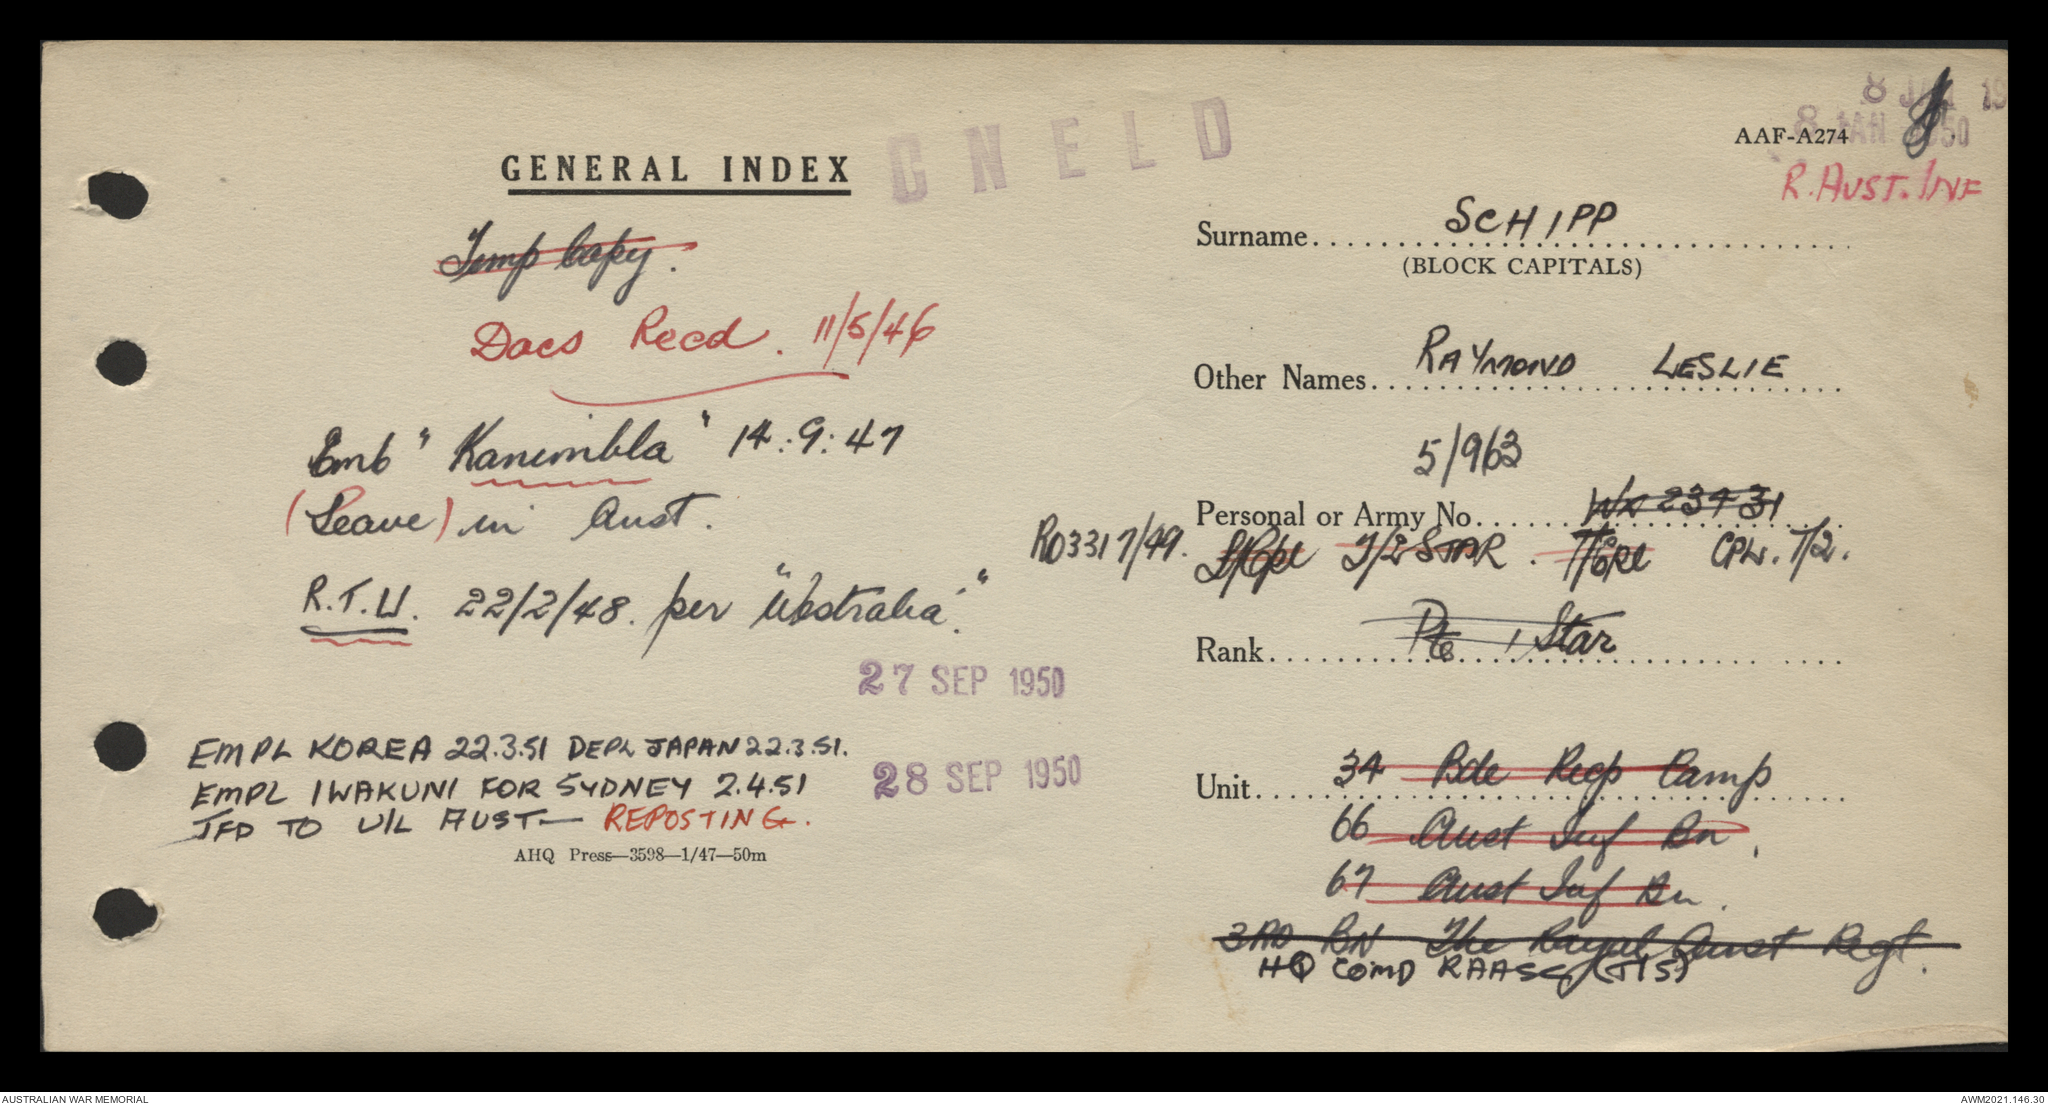 GENERAL INDEX
CNELD
Temp Copy.
Docs Recd. 11/5/46
Emb "Kanimbla" 14:9:47
(Leave) in Aust.
R.T.U. 22/2/48. per "Westralia".
27 SEP 1950
28 SEP 1950
EMPL KOREA 22.3.51 DEPL JAPAN 22.3.51.
EMPL IWAKUNI FOR SYDNEY 2.4.51
TFD TO U/L AUST— REPOSTING.
AHQ Press—3598—1/47—50m
8 JAN 19
8 JAN 1950
AAF-A274
R. AUST. INF
Surname SCHIPP
(BLOCK CAPITALS)
Other Names RAYMOND LESLIE
5/963
Personal or Army No. WX 23431
RO3317/49. L/Cpl T/2 STAR. T/CPL CPL. T/2.
Rank Pte 1 Star
Unit 34 Bde Recp Camp
66 Aust Inf Bn.
67 Aust Inf Bn.
3RD BN The Royal Aust Regt.
HQ COMD RAASC (TIS)
AUSTRALIAN WAR MEMORIAL
AWM2021.146.30